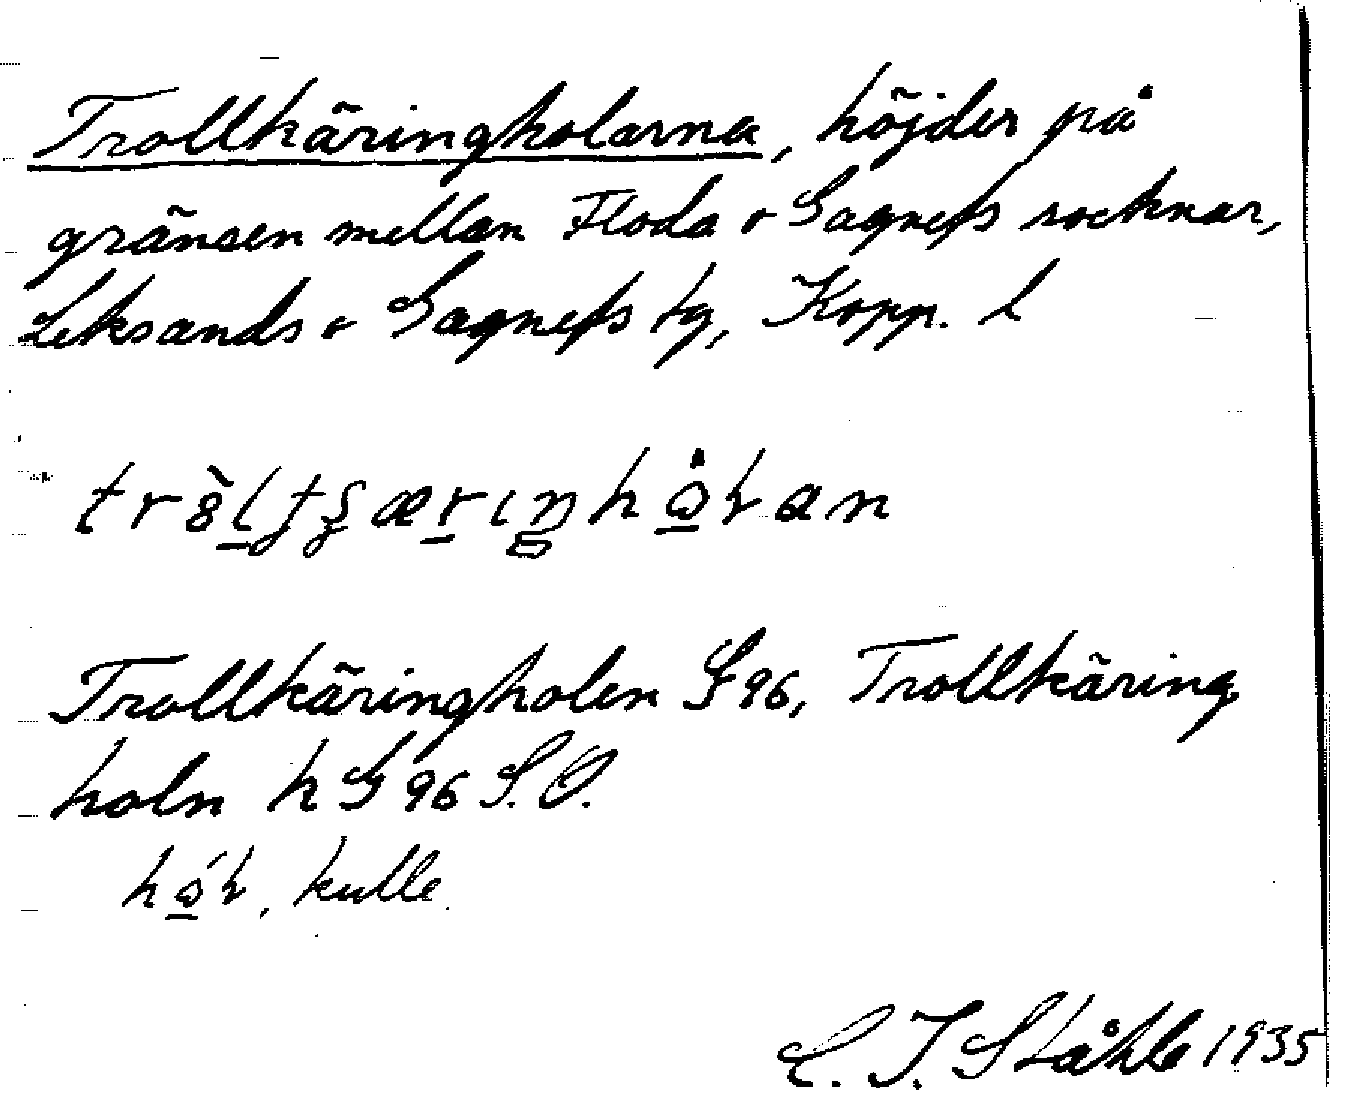 Trollkäringholarna, höjder på
gränsen mellan Floda o Gagnefs socknar,
Leksands o Gagnefs tg, Kopp. l
Trollkäringholen G96, Trollkäring
holn h G 96 S.O.
kulle
C. I. Ståhle 1935